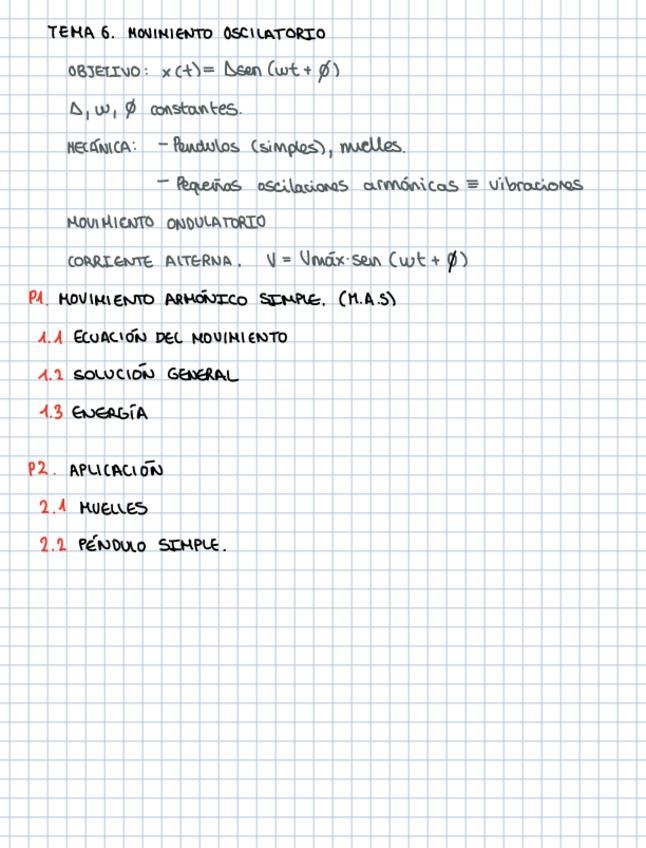 TEMA 6. MOVIMIENTO OSCILATORIO
OBJETIVO: x(t) = Δsen (wt + ø)
Δ, w, ø constantes.
MECÁNICA: - Pendulos (simples), muelles.
- Pequeños oscilaciones armónicas ≡ vibraciones
MOVIMIENTO ONDULATORIO
CORRIENTE ALTERNA. V = Vmáx·sen (wt + ø)
P1. MOVIMIENTO ARMÓNICO SIMPLE. (M.A.S)
1.1 ECUACIÓN DEL MOVIMIENTO
1.2 SOLUCIÓN GENERAL
1.3 ENERGÍA
P2. APLICACIÓN
2.1 MUELLES
2.2 PÉNDULO SIMPLE.